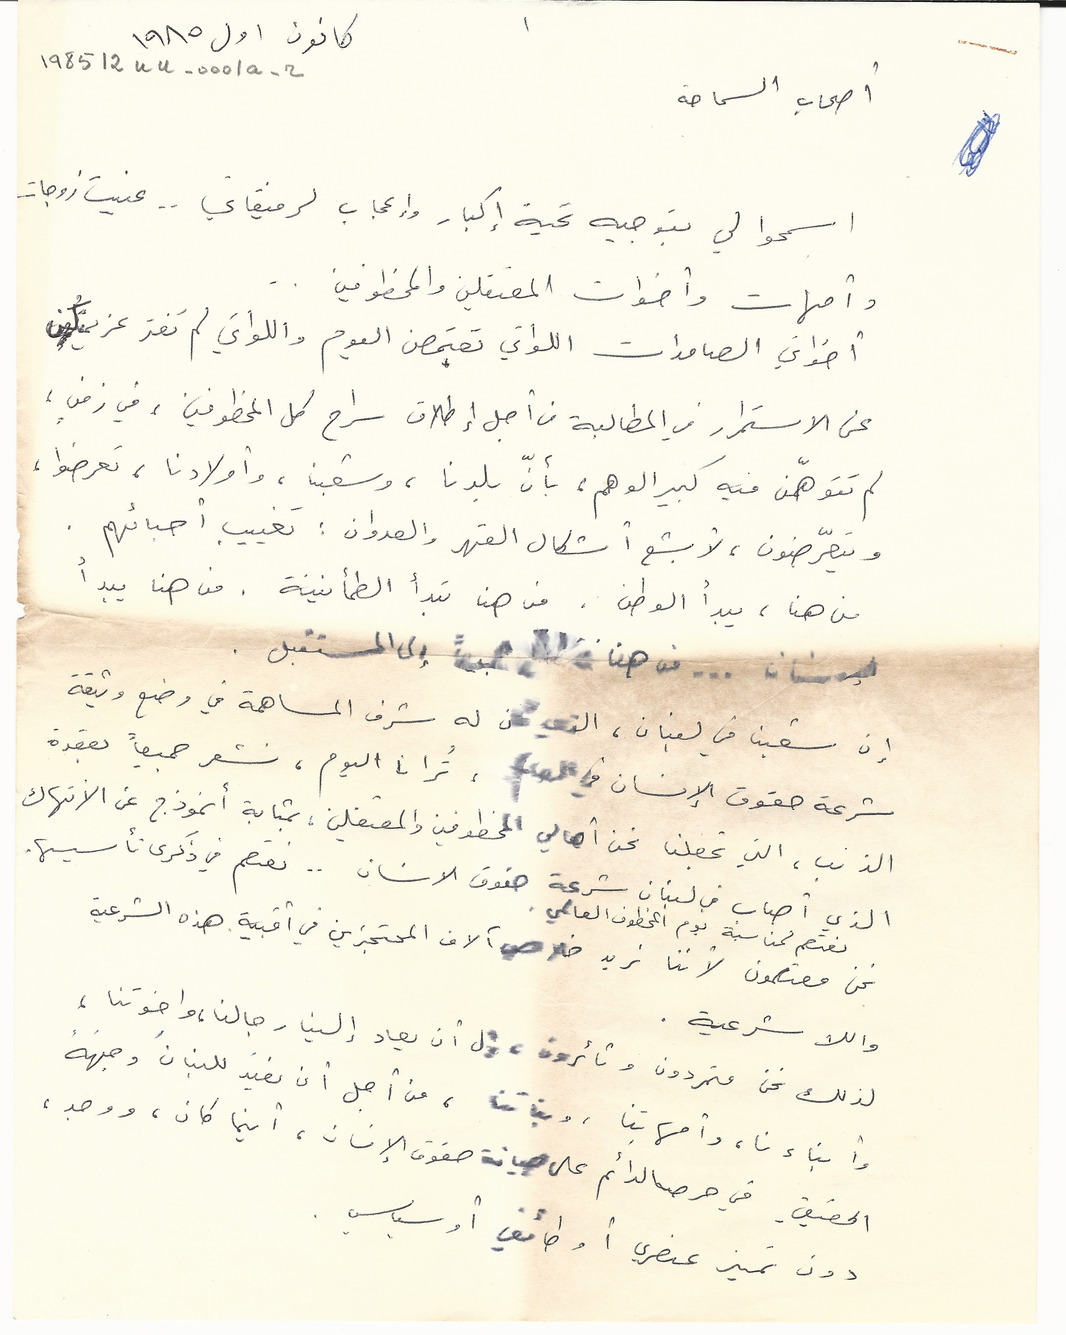 ١
كانون اول ١٩٨٥
198512 uu -0001a -2
أصحاب السماحة
اسمحوا لي بتوجيه تحية إكبار وإعجاب لرفيقاتي .. عنيت زوجات
وأمهات وأخوات المعتقلين والمخطوفين ..
أخواتي الصامدات اللواتي تعتصمن اليوم واللواتي لم تفتر عزيمتهن
عن الاستمرار في المطالبة من أجل إطلاق سراح كل المخطوفين ، في زمنٍ ،
لم تتوهّمن فيه كبير الوهم ، بأنّ بلدنا ، وشعبنا ، وأولادنا ، تعرضوا ،
ويتعرّضون ، لأبشع أشكال القهر والعدوان : تغييب أحبائهم .
من هنا ، يبدأ الوطن . من هنا تبدأ الطمأنينة . من هنا يبدأ
الإنسان ... من هنا جميعاً إلى المستقبل .
إن شعبنا في لبنان ، الذي كان له شرف المساهمة في وضع وثيقة
شرعة حقوق الإنسان في العالم ، تُرانا اليوم ، نشعر جميعاً بعقدة
الذنب ، التي تجعلنا نحن أهالي المخطوفين والمعتقلين ، بمثابة أنموذج عن الانتهاك
الذي أصاب في لبنان شرعة حقوق الانسان .. نعتصم في ذكرى تأسيسها .
نعتصم لمناسبة يوم المخطوف العالمي .
نحن معتصمون لأننا نريد خلاص آلاف المحتجزين في أقبية هذه الشرعية
واللا شرعية .
لذلك نحن متمردون وثائرون ، من أجل أن يعاد إلينا رجالنا ، واخوتنا ،
وأبناءنا ، وأمهاتنا ، وبناتنا ، من أجل أن نعيد للبنان وجههُ
الحقيقي في حرصه الدائم على صيانة حقوق الإنسان ، أينما كان ، ووجد ،
دون تمييز عنصري أو طائفي أو سياسي .